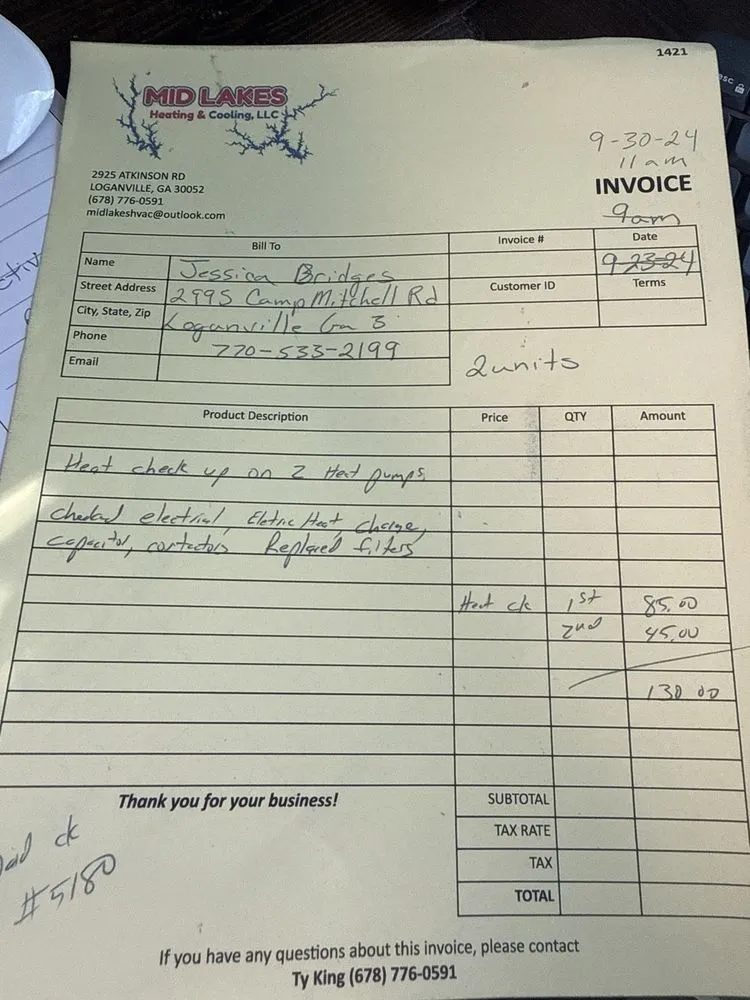 1421
esc
MID LAKES
Heating & Cooling, LLC
2925 ATKINSON RD
LOGANVILLE, GA 30052
(678) 776-0591
midlakeshvac@outlook.com
9-30-24
11am
INVOICE
9am
Bill To
Invoice #
Date
9-23-24
Name
Jessica Bridges
Street Address
2995 Camp Mitchell Rd
Customer ID
Terms
City, State, Zip
Loganville Ga 3
Phone
770-533-2199
Email
2 units
Product Description
Price
QTY
Amount
Heat check up on 2 Heat pumps
checked electrial, Eletric Heat, charge,
capacitor, contactors Replaced filters
Heat ck 1st 85.00
2nd 45.00
130 00
Thank you for your business!
SUBTOTAL
TAX RATE
TAX
TOTAL
ck
#5180
If you have any questions about this invoice, please contact
Ty King (678) 776-0591